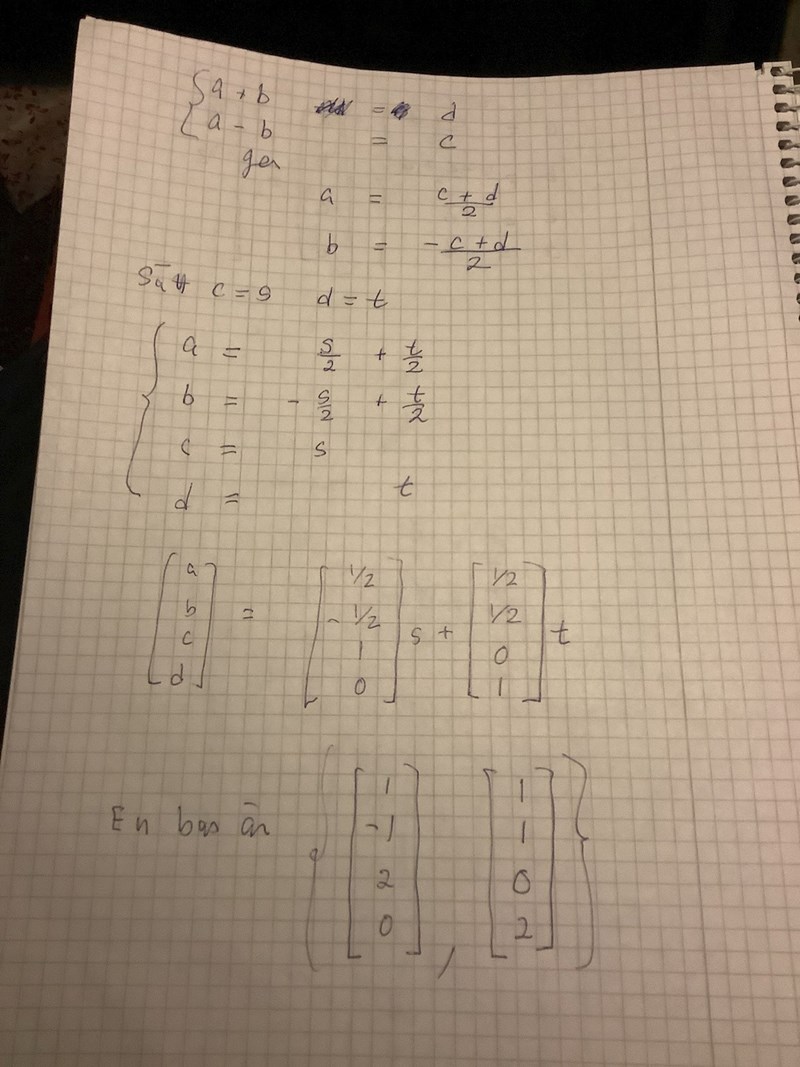 { a + b = d
a - b = c
ger
a = c + d / 2
b = - c + d / 2
Sätt c = s d = t
{ a = s/2 + t/2
b = - s/2 + t/2
c = s
d = t
[a b c d] = [1/2 -1/2 1 0] s + [1/2 1/2 0 1] t
En bas är { [1 -1 2 0] , [1 1 0 2] }